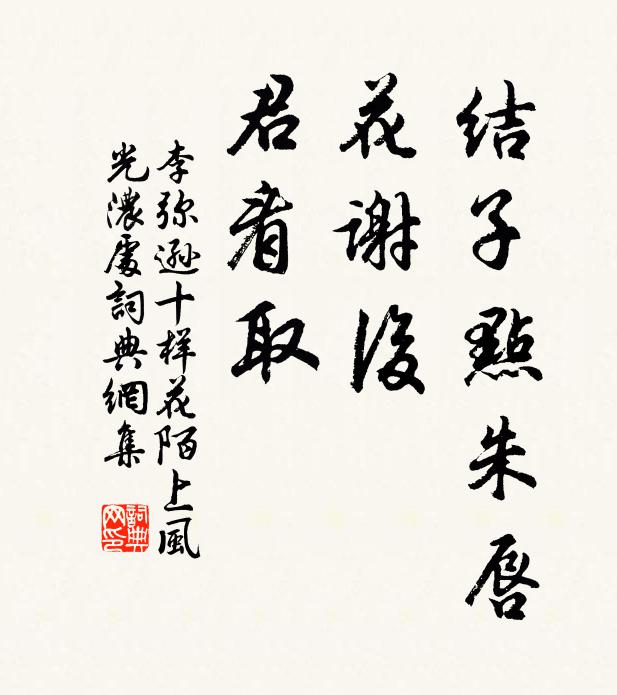 结子點朱唇
花謝後
君看取
李弥遜十样花陌上風
光濃處詞典網集
詞典
网印